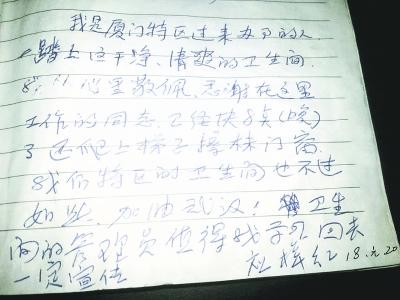 我是厦门特区过来办事的人
踏上这干净、清爽的卫生间
心里敬佩、感谢在这里
工作的同志.已经快8点(晚)
了 还爬上梯子擦门窗.
我们特区的卫生间也不过
如此.加油武汉!卫生
间的管理员值得我学习 回去
一定宣传 红 18.元20